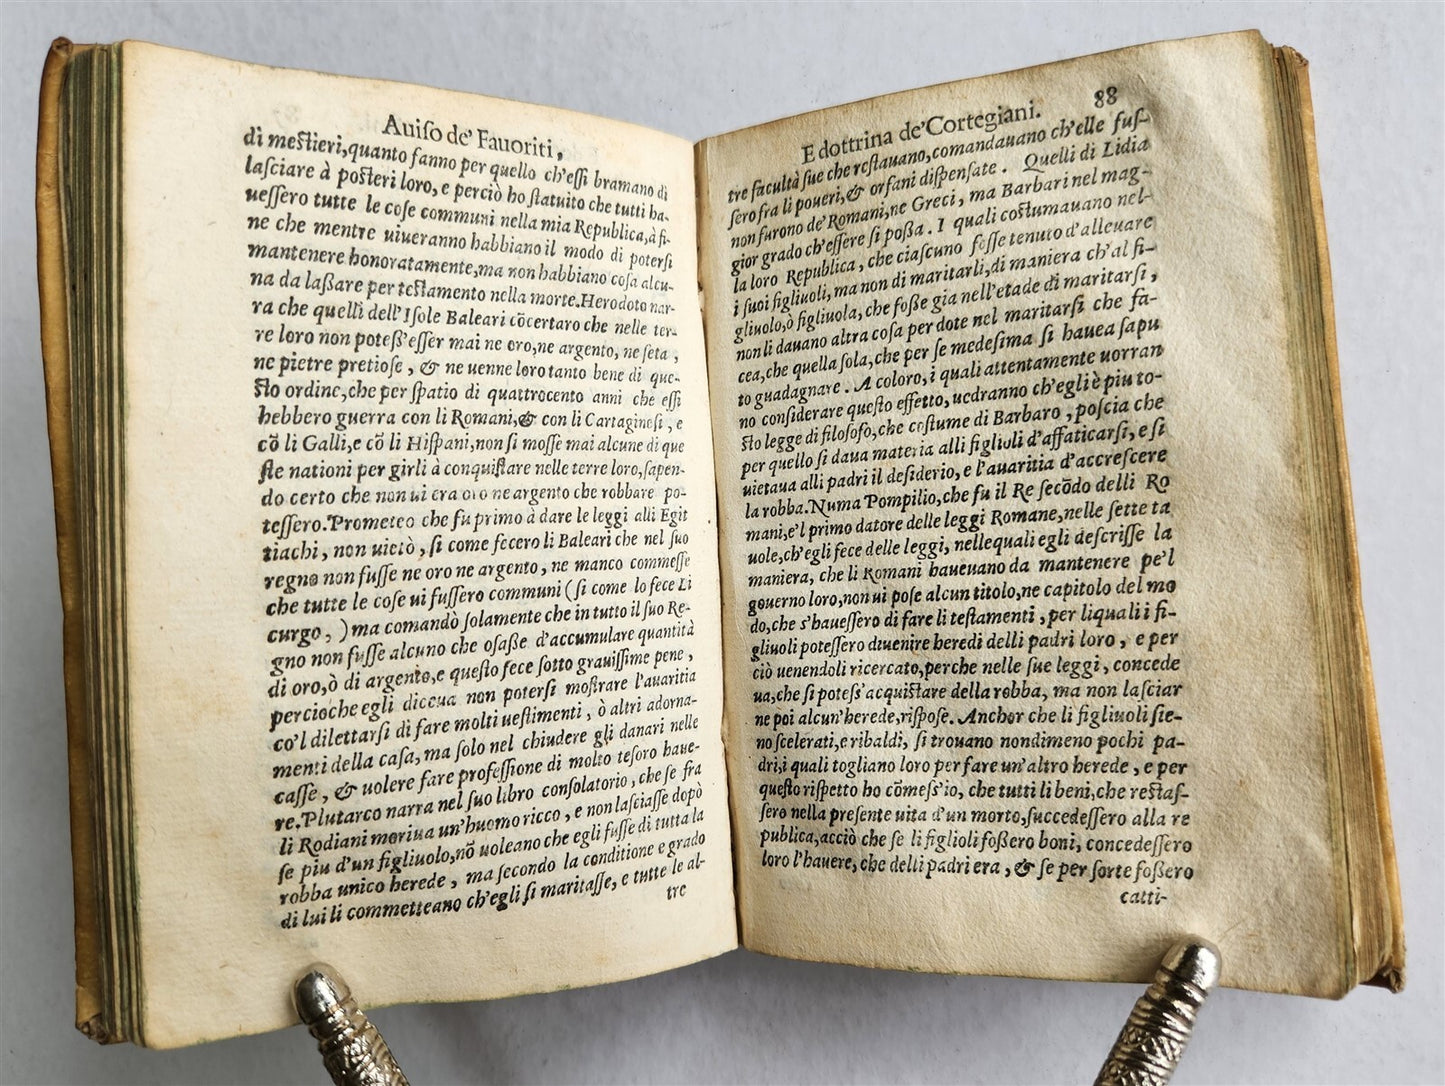 Auiſo de' Fauoriti,
di meſtieri,quanto fanno per quello ch'eſſi bramano di
laſciare à poſteri loro, e perciò ho ſtatuito che tutti ha-
ueſſero tutte le coſe communi nella mia Republica,à fi-
ne che mentre uiueranno habbiano il modo di poterſi
mantenere honoratamente,ma non habbiano coſa alcu-
na da laſſare per teſtamento nella morte.Herodoto nar-
ra che quelli dell'Iſole Baleari cõcertaro che nelle ter-
re loro non poteſſ'eſſer mai ne oro,ne argento, ne ſeta ,
ne pietre pretioſe , & ne uenne loro tanto bene di que-
ſto ordine,che per ſpatio di quattrocento anni che eſſi
hebbero guerra con li Romani,& con li Cartagineſi , e
cõ li Galli,e cõ li Hiſpani,non ſi moſſe mai alcune di que
ſte nationi per girli à conquiſtare nelle terre loro,ſapen-
do certo che non ui era oro ne argento che robbare po-
teſſero.Prometeo che fu primo à dare le leggi alli Egit
tiachi , non uietò , ſi come fecero li Baleari che nel ſuo
regno non fuſſe ne oro ne argento , ne manco commeſſe
che tutte le coſe ui fuſſero communi (ſi come lo fece Li
curgo, ) ma comandò ſolamente che in tutto il ſuo Re-
gno non fuſſe alcuno che oſaſſe d'accumulare quantità
di oro,ò di argento,e queſto fece ſotto grauiſſime pene ,
percioche egli diceua non poterſi moſtrare l'auaritia
co'l dilettarſi di fare molti ueſtimenti , ò altri adorna-
menti della caſa, ma ſolo nel chiudere gli danari nelle
caſſe , & uolere fare profeſſione di molto teſoro haue-
re.Plutarco narra nel ſuo libro conſolatorio , che ſe fra
li Rodiani moriua un'huomo ricco , e non laſciaſſe dopò
ſe piu d'un figliuolo,nõ uoleano che egli fuſſe di tutta la
robba unico herede , ma ſecondo la conditione e grado
di lui li commetteano ch'egli ſi maritaſſe, e tutte le al-
tre
88
E dottrina de'Cortegiani.
tre facultà ſue che reſtauano,comandauano ch'elle fuſ-
ſero fra li poueri,& orfani diſpenſate . Quelli di Lidia
non furono de' Romani,ne Greci , ma Barbari nel mag-
gior grado ch'eſſere ſi poſſa . I quali coſtumauano nel-
la loro Republica , che ciaſcuno foſſe tenuto d'alleuare
i ſuoi figliuoli, ma non di maritarli,di maniera ch'al fi-
gliuolo,ò figliuola, che foſſe gia nell'etade di maritarſi ,
non li dauano altra coſa per dote nel maritarſi che fa-
cea,che quella ſola,che per ſe medeſima ſi hauea ſapu
to guadagnare . A coloro, i quali attentamente uorran
no conſiderare queſto effetto, uedranno ch'egli è piu to-
ſto legge di filoſofo,che coſtume di Barbaro , poſcia che
per quello ſi daua materia alli figliuoli d'affaticarſi, e ſi
uietaua alli padri il deſiderio, e l'auaritia d'accreſcere
la robba.Numa Pompilio,che fu il Re ſecõdo delli Ro
mani,e'l primo datore delle leggi Romane,nelle ſette ta
uole,ch'egli fece delle leggi, nellequali egli deſcriſſe la
maniera, che li Romani haueuano da mantenere pe'l
gouerno loro,non ui poſe alcun titolo,ne capitolo del mo
do,che s'haueſſero di fare li teſtamenti , per liquali i fi-
gliuoli poteſſero diuenire heredi delli padri loro , e per
ciò uenendoli ricercato,perche nelle ſue leggi , concede
ua,che ſi poteſſ'acquiſtare della robba, ma non laſciar
ne poi alcun'herede,riſpoſe. Anchor che li figliuoli ſie-
no ſcelerati,e ribaldi, ſi trouano nondimeno pochi pa-
dri,i quali togliano loro per fare un'altro herede , e per
queſto riſpetto ho cõmeſſ'io, che tutti li beni,che reſtaſ-
ſero nella preſente uita d'un morto,ſuccedeſſero alla re
publica,acciò che ſe li figlioli foſſero boni, concedeſſero
loro l'hauere, che delli padri era , & ſe per ſorte foſſero
catti-